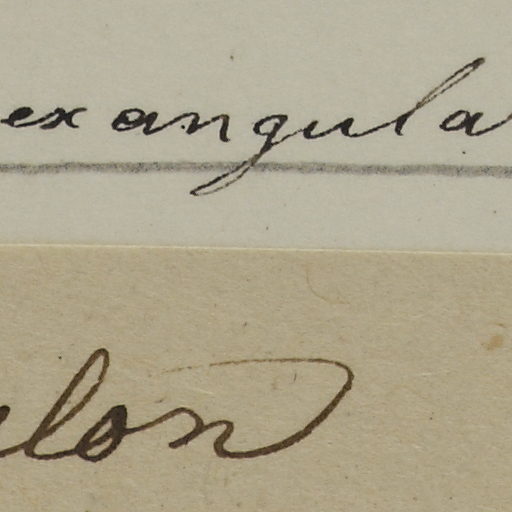 exangula
lon